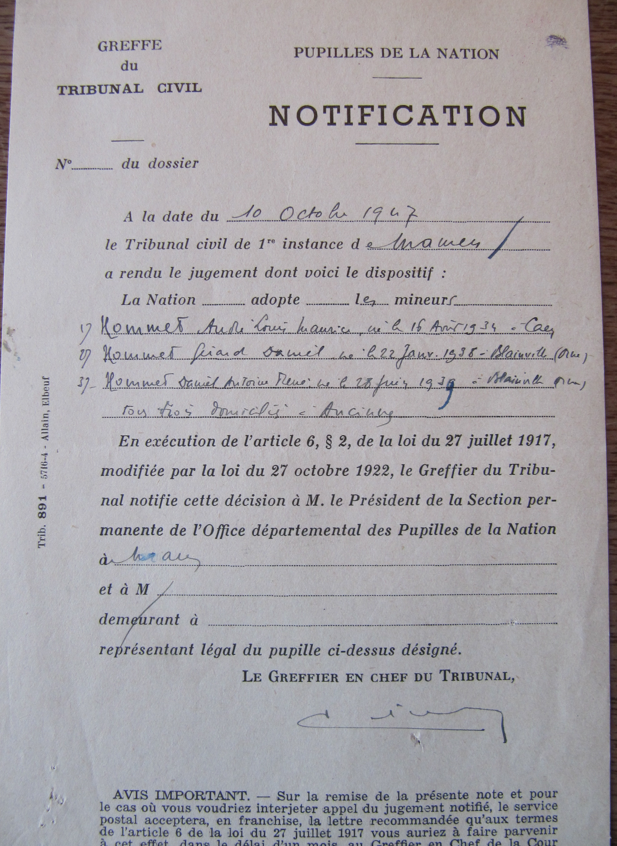 GREFFE
du
TRIBUNAL CIVIL
PUPILLES DE LA NATION
NOTIFICATION
N° du dossier
A la date du 10 Octobre 1947
le Tribunal civil de 1re instance de Mamers
a rendu le jugement dont voici le dispositif :
La Nation adopte les mineurs
1) Hommet André Louis Maurice, né le 16 Avril 1934 à Caen
2) Hommet Gérard Daniel né le 22 Janv. 1938 - Blainville (Orne)
3) Hommet Daniel Antoine René né le 28 juin 1939 à Blainville Orne,
tous trois domiciliés à Ancinnes
En exécution de l'article 6, § 2, de la loi du 27 juillet 1917,
modifiée par la loi du 27 octobre 1922, le Greffier du Tribu-
nal notifie cette décision à M. le Président de la Section per-
manente de l'Office départemental des Pupilles de la Nation
à
et à M
demeurant à
représentant légal du pupille ci-dessus désigné.
LE GREFFIER EN CHEF DU TRIBUNAL,
Trib. 891 - 5716-4 - Allain, Elbeuf
AVIS IMPORTANT. — Sur la remise de la présente note et pour
le cas où vous voudriez interjeter appel du jugement notifié, le service
postal acceptera, en franchise, la lettre recommandée qu'aux termes
de l'article 6 de la loi du 27 juillet 1917 vous auriez à faire parvenir
à cet effet, dans le délai d'un mois, au Greffier en Chef de la Cour